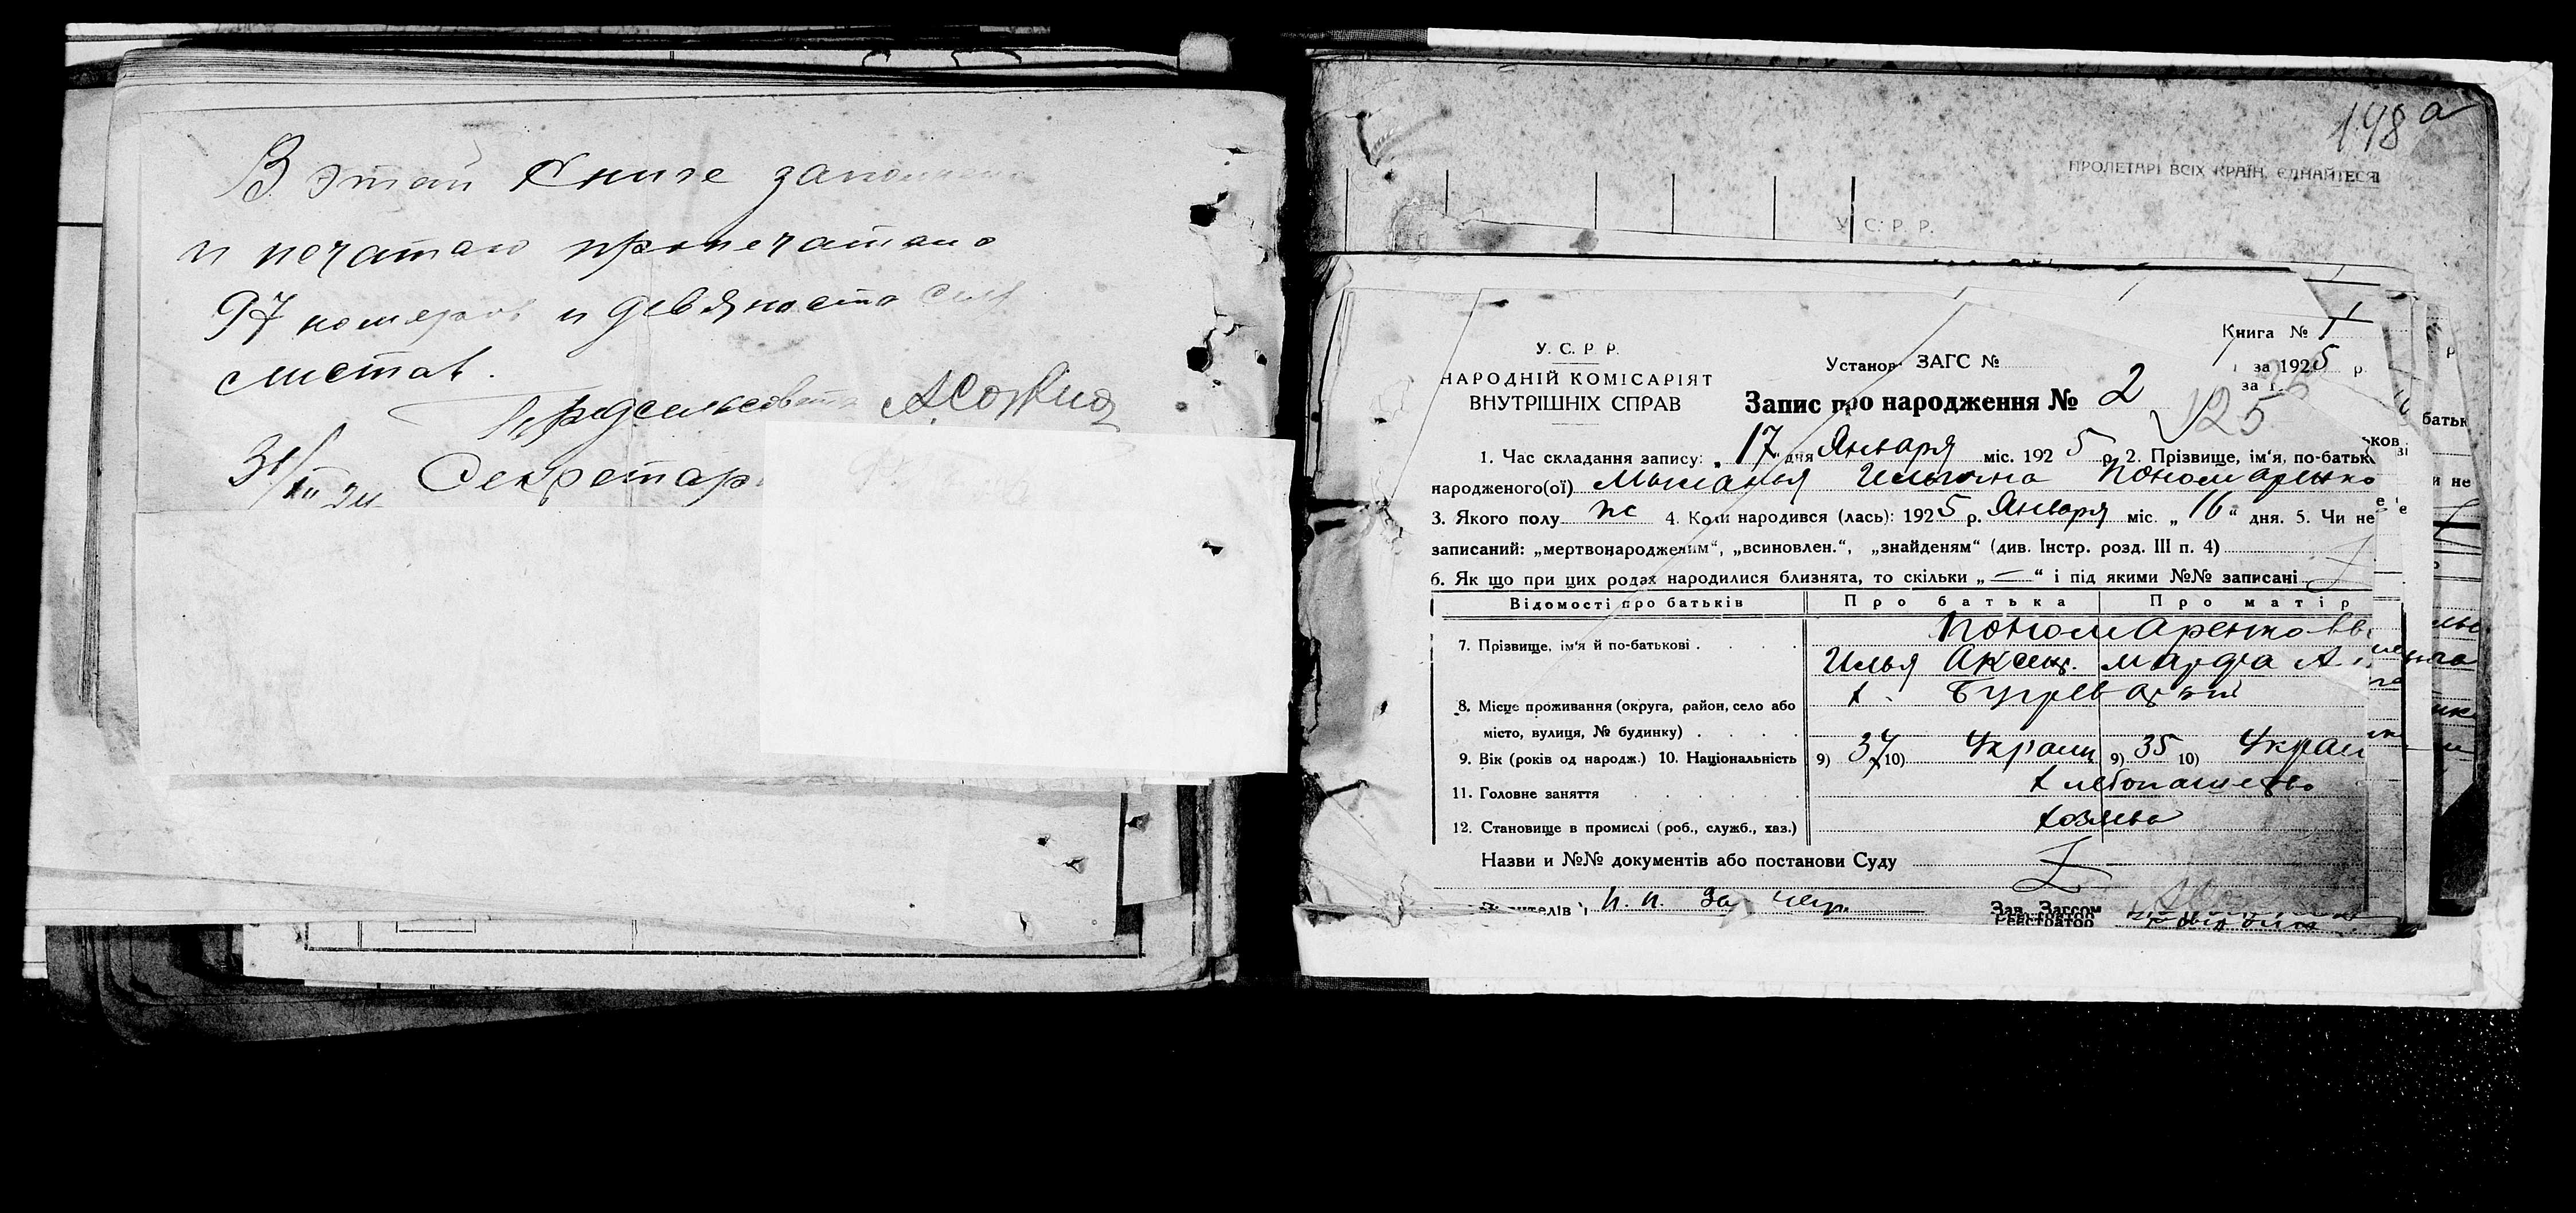 В этой книге
и печатаю пропечатано
97 номеров и девяноста сем
листов.
Предсельсовета
31/XII 24 Секретарь
148 а
ПРОЛЕТАРІ ВСІХ КРАЇН, ЄДНАЙТЕСЯ
У. С. Р. Р.
Книга № 1
У. С. Р. Р.
Установ ЗАГС №
за 1925 р
НАРОДНІЙ КОМІСАРІЯТ
ВНУТРІШНІХ СПРАВ
Запис про народження № 2
125
1. Час складання запису: „17" дня Января міс. 1925 р. 2. Прізвище, ім'я, по-батьк
народженого(ої) Ильична Пономаренко
3. Якого полу ж 4. Коли народився (лась): 1925 р. Января міс. „16" дня. 5. Чи не
записаний: „мертвонародженим", „всиновлен.", „знайденям" (див. Інстр. розд. III п. 4)
6. Як що при цих родах народилися близнята, то скільки „—" і під якими №№ записані
Відомості про батьків Про батька Про матір
7. Прізвище, ім'я й по-батькові Пономаренко
Илья Марфа А
8. Місце проживання (округа, район, село або
місто, вулиця, № будинку)
9. Вік (років од народж.) 10. Національність 9) 37 10) Украин 9) 35 10) Украи
11. Головне заняття хлебопашество
12. Становище в промислі (роб., служб., хаз.) хозяева
Назви и №№ документів або постанови Суду
Зав. Загсом
Реєстратор